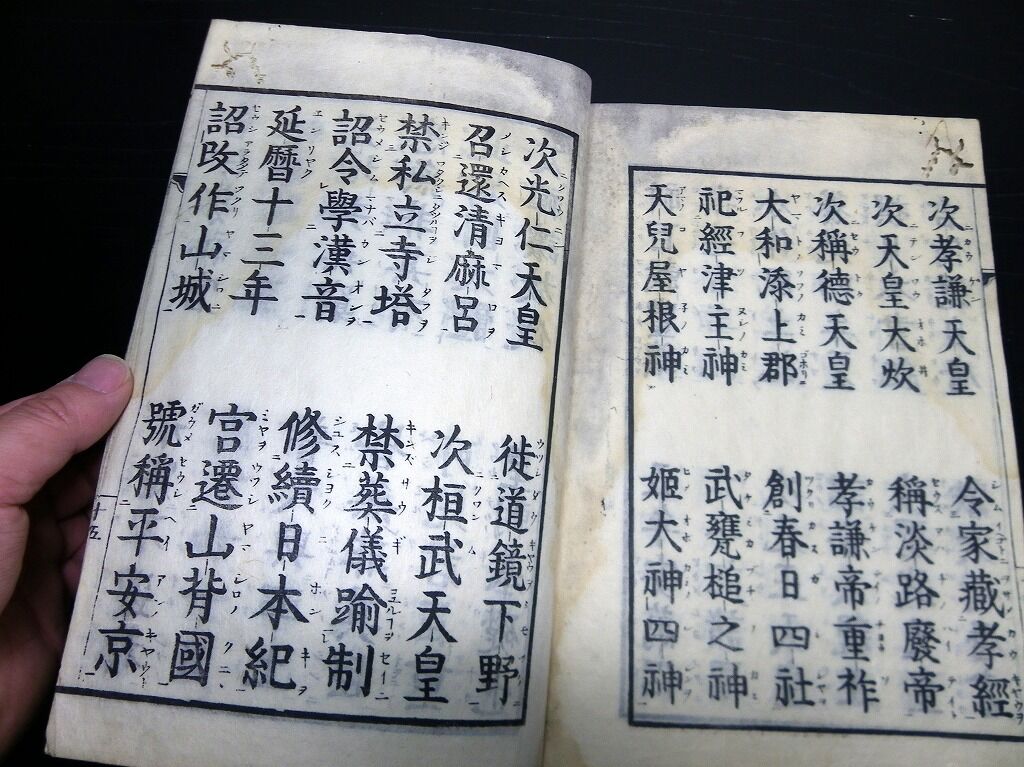 次孝謙天皇　令家藏孝經
次天皇大炊　稱淡路廢帝
次稱德天皇　孝謙帝重祚
大和添上郡　創春日四社
祀經津主神　武甕槌之神
天兒屋根神　姬大神四神
次光仁天皇　徙道鏡下野
召還清麻呂　次桓武天皇
禁私立寺塔　禁葬儀踰制
詔令學漢音　修續日本紀
延暦十三年　宮遷山背國
詔改作山城　號稱平安京
十五